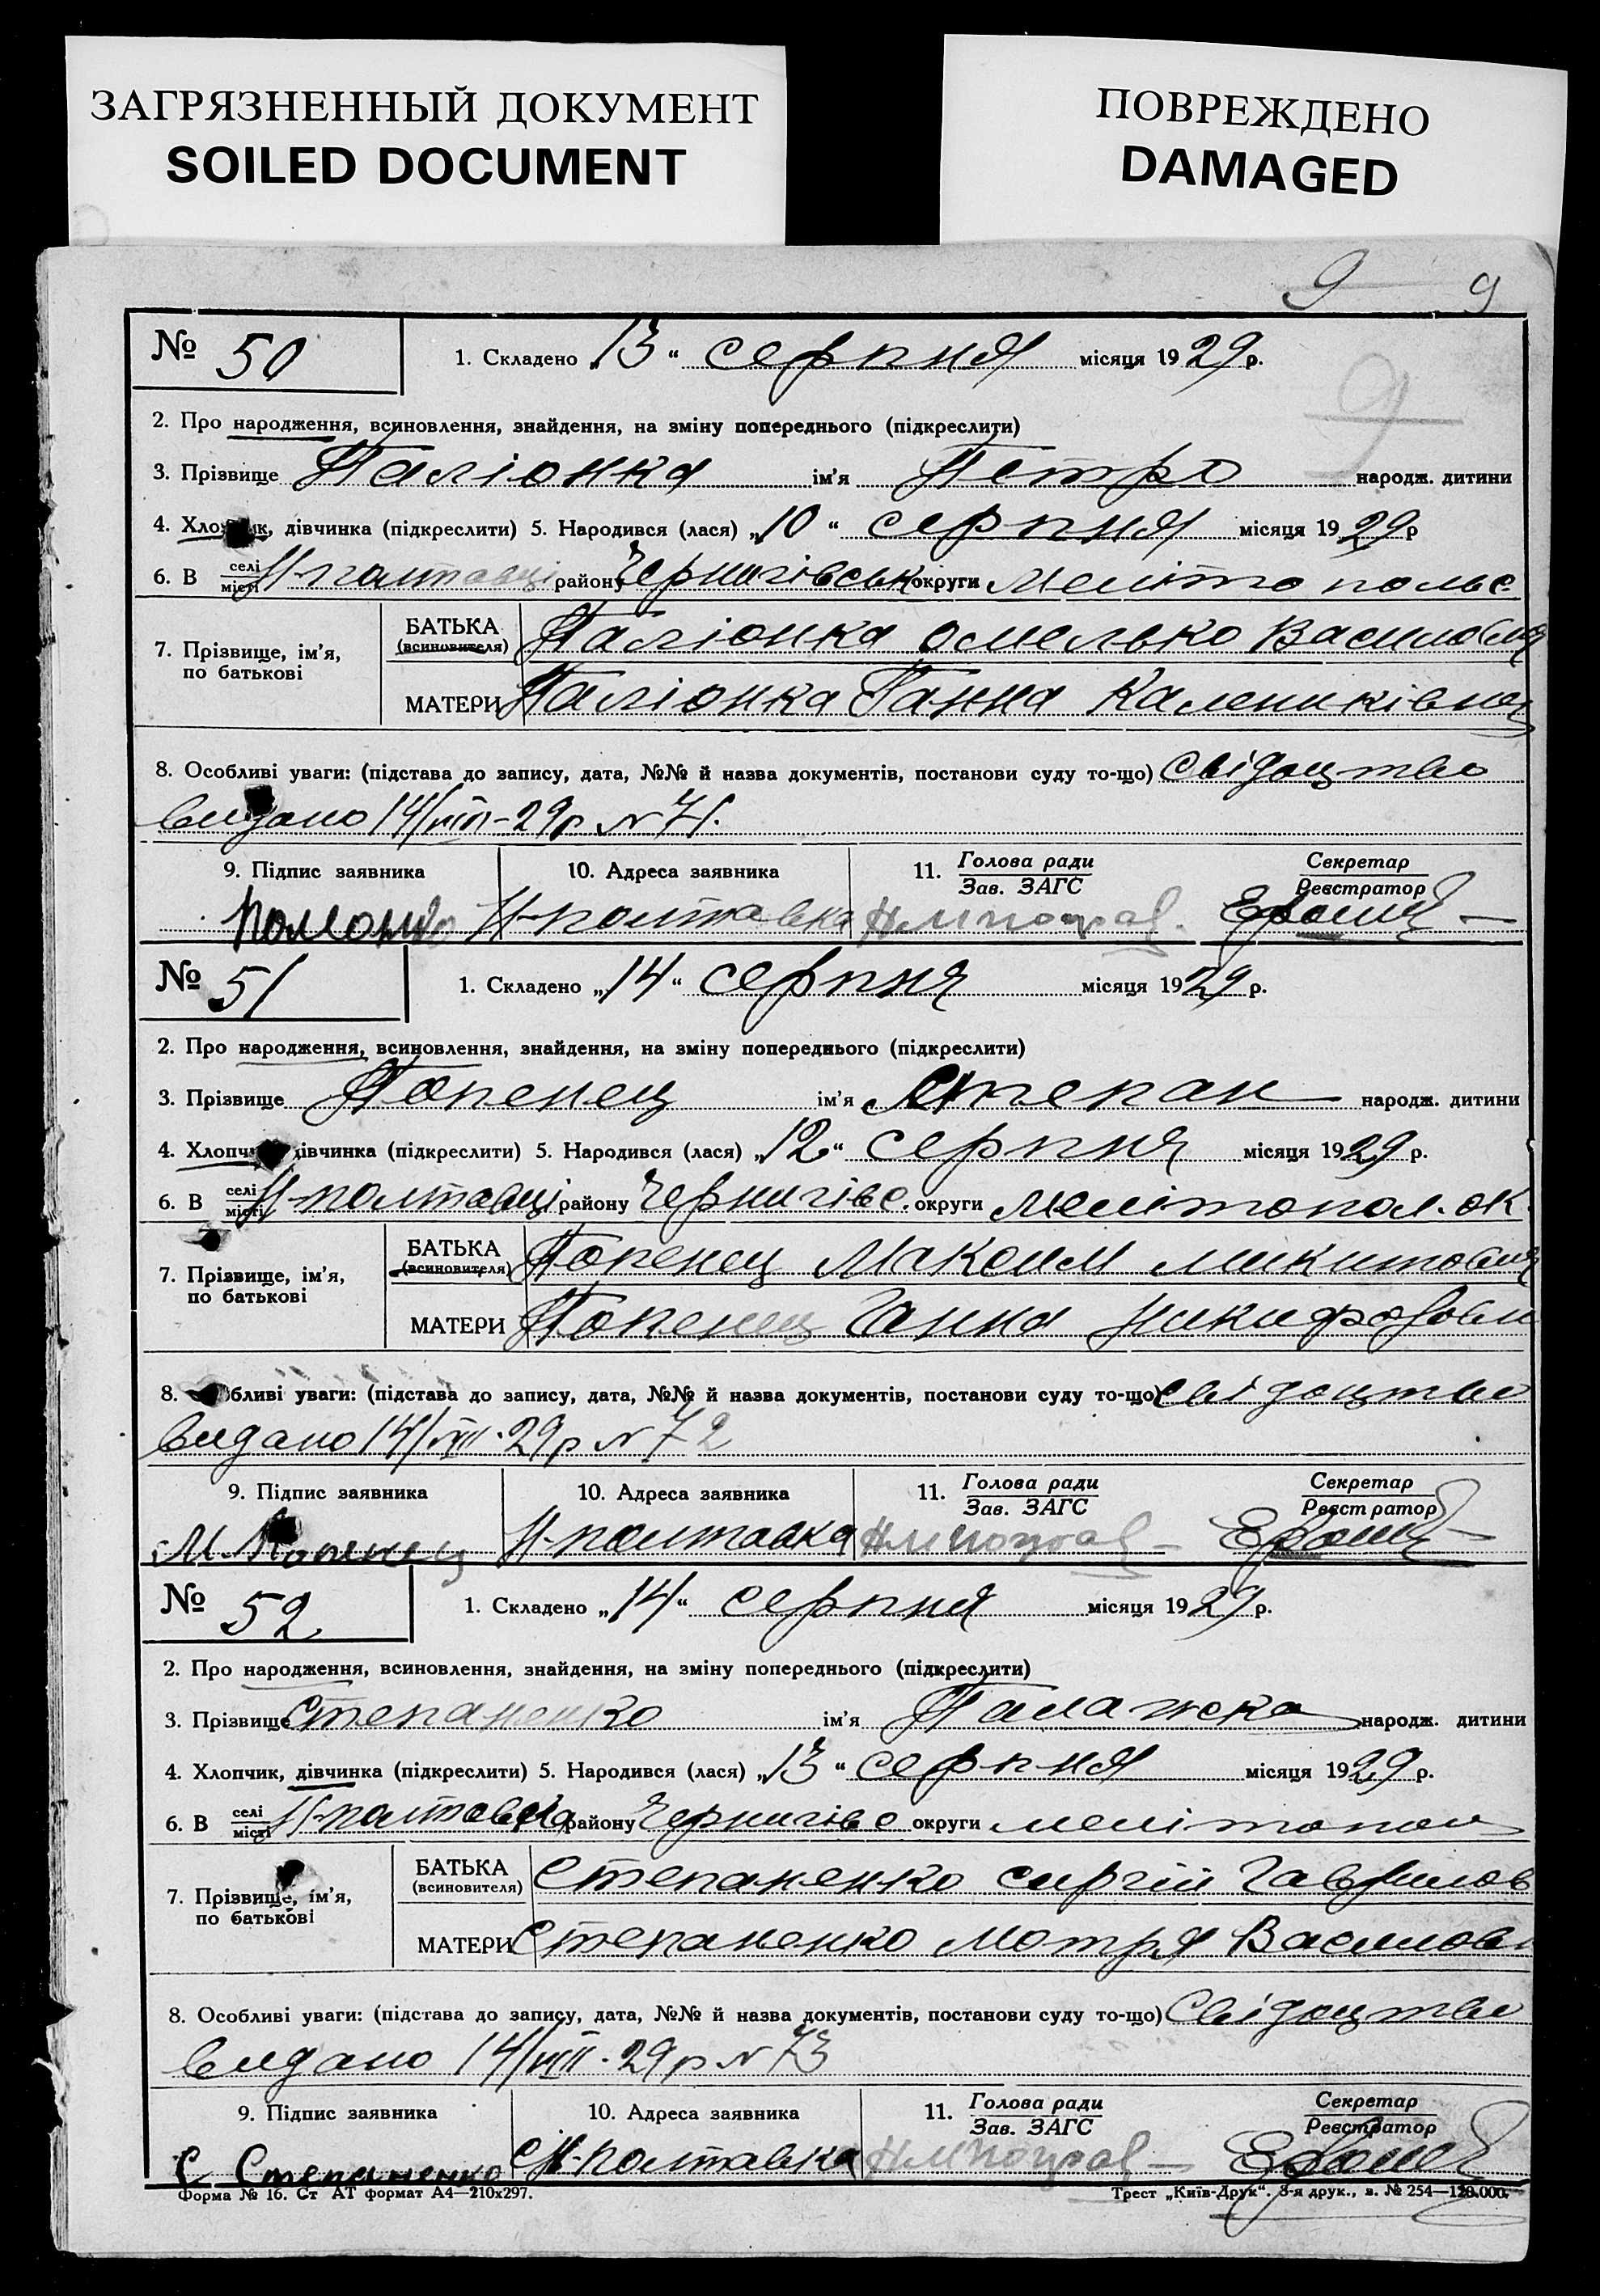 ЗАГРЯЗНЕННЫЙ ДОКУМЕНТ
SOILED DOCUMENT
ПОВРЕЖДЕНО
DAMAGED
9 9
9
№ 50 1. Складено „13“ серпня місяця 1929 р.
2. Про народження, всиновлення, знайдення, на зміну попереднього (підкреслити)
3. Прізвище Паліонка ім'я Петро народж. дитини
4. Хлопчик, дівчинка (підкреслити) 5. Народився (лася) „10“ серпня місяця 1929 р
6. В селі місті Н-полтавці району Чернигівськ округи Мелітопольс.
7. Прізвище, ім'я, по батькові БАТЬКА (всиновителя) Паліонка Омелько Василович
МАТЕРИ Паліонка Ганна Калениківна
8. Особливі уваги: (підстава до запису, дата, №№ й назва документів, постанови суду то-що) Свідоцтво
видано 14/VIII-29р N 71.
9. Підпис заявника 10. Адреса заявника 11. Голова ради Зав. ЗАГС Секретар Реєстратор
Н-полтавка
№ 51 1. Складено „14“ серпня місяця 1929 р.
2. Про народження, всиновлення, знайдення, на зміну попереднього (підкреслити)
3. Прізвище Попенец ім'я Степан народж. дитини
4. Хлопчик, дівчинка (підкреслити) 5. Народився (лася) „12“ серпня місяця 1929 р.
6. В селі місті Н-полтавці району Чернигівс. округи Мелітопол. ок.
7. Прізвище, ім'я, по батькові БАТЬКА (всиновителя) Попенец Максим Микитович
МАТЕРИ Попенец Ганна Никифоровн
8. Особливі уваги: (підстава до запису, дата, №№ й назва документів, постанови суду то-що) Свідоцтво
видано 14/VIII-29р N 72
9. Підпис заявника 10. Адреса заявника 11. Голова ради Зав. ЗАГС Секретар Реєстратор
М. Попенец Н-полтавка
№ 52 1. Складено „14“ серпня місяця 1929 р.
2. Про народження, всиновлення, знайдення, на зміну попереднього (підкреслити)
3. Прізвище Степаненко ім'я Палажка народж. дитини
4. Хлопчик, дівчинка (підкреслити) 5. Народився (лася) „13“ серпня місяця 1929 р.
6. В селі місті Н-полтавка району Чернигівс округи Мелітопол
7. Прізвище, ім'я, по батькові БАТЬКА (всиновителя) Степаненко Сиргій Гаврилов
МАТЕРИ Степаненко Мотря Василовн
8. Особливі уваги: (підстава до запису, дата, №№ й назва документів, постанови суду то-що) Свідоцтво
видано 14/VIII-29р N 73
9. Підпис заявника 10. Адреса заявника 11. Голова ради Зав. ЗАГС Секретар Реєстратор
С Степаненко с Н-Полтавка
Форма № 16. Ст АТ формат А4—210х297. Трест „Київ-Друк“. 3-я друк., з. № 254—120.000.